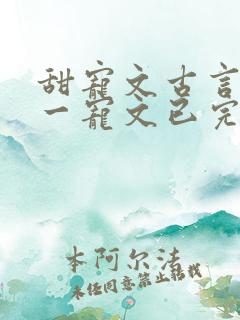 甜宠文古言
一宠文已完
本阿尔法
未经同意禁止转载